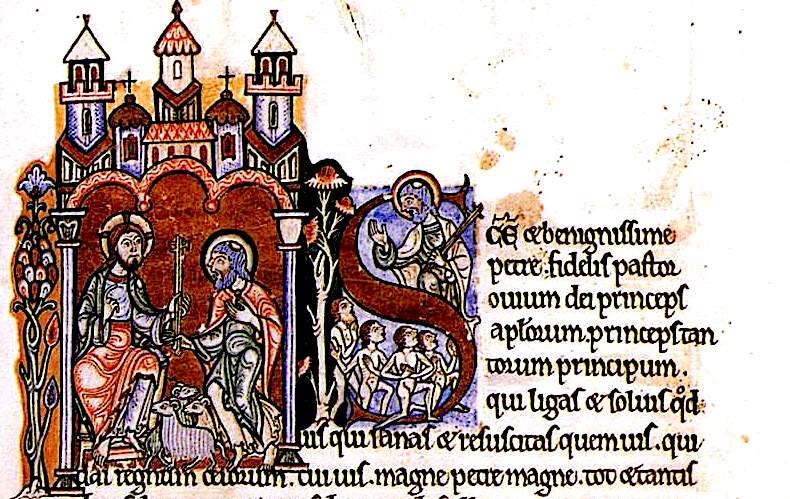 S c̄e̅ & benignissime
petre. fidelis pastor
ouium dei princeps
apl̄orum. princeps tan
torum principum.
qui ligas & soluis qd̄
uis qui sanas & resuscitas quem uis. qui
das regnum celorum. cui uis. magne petre magne. tot & tantis